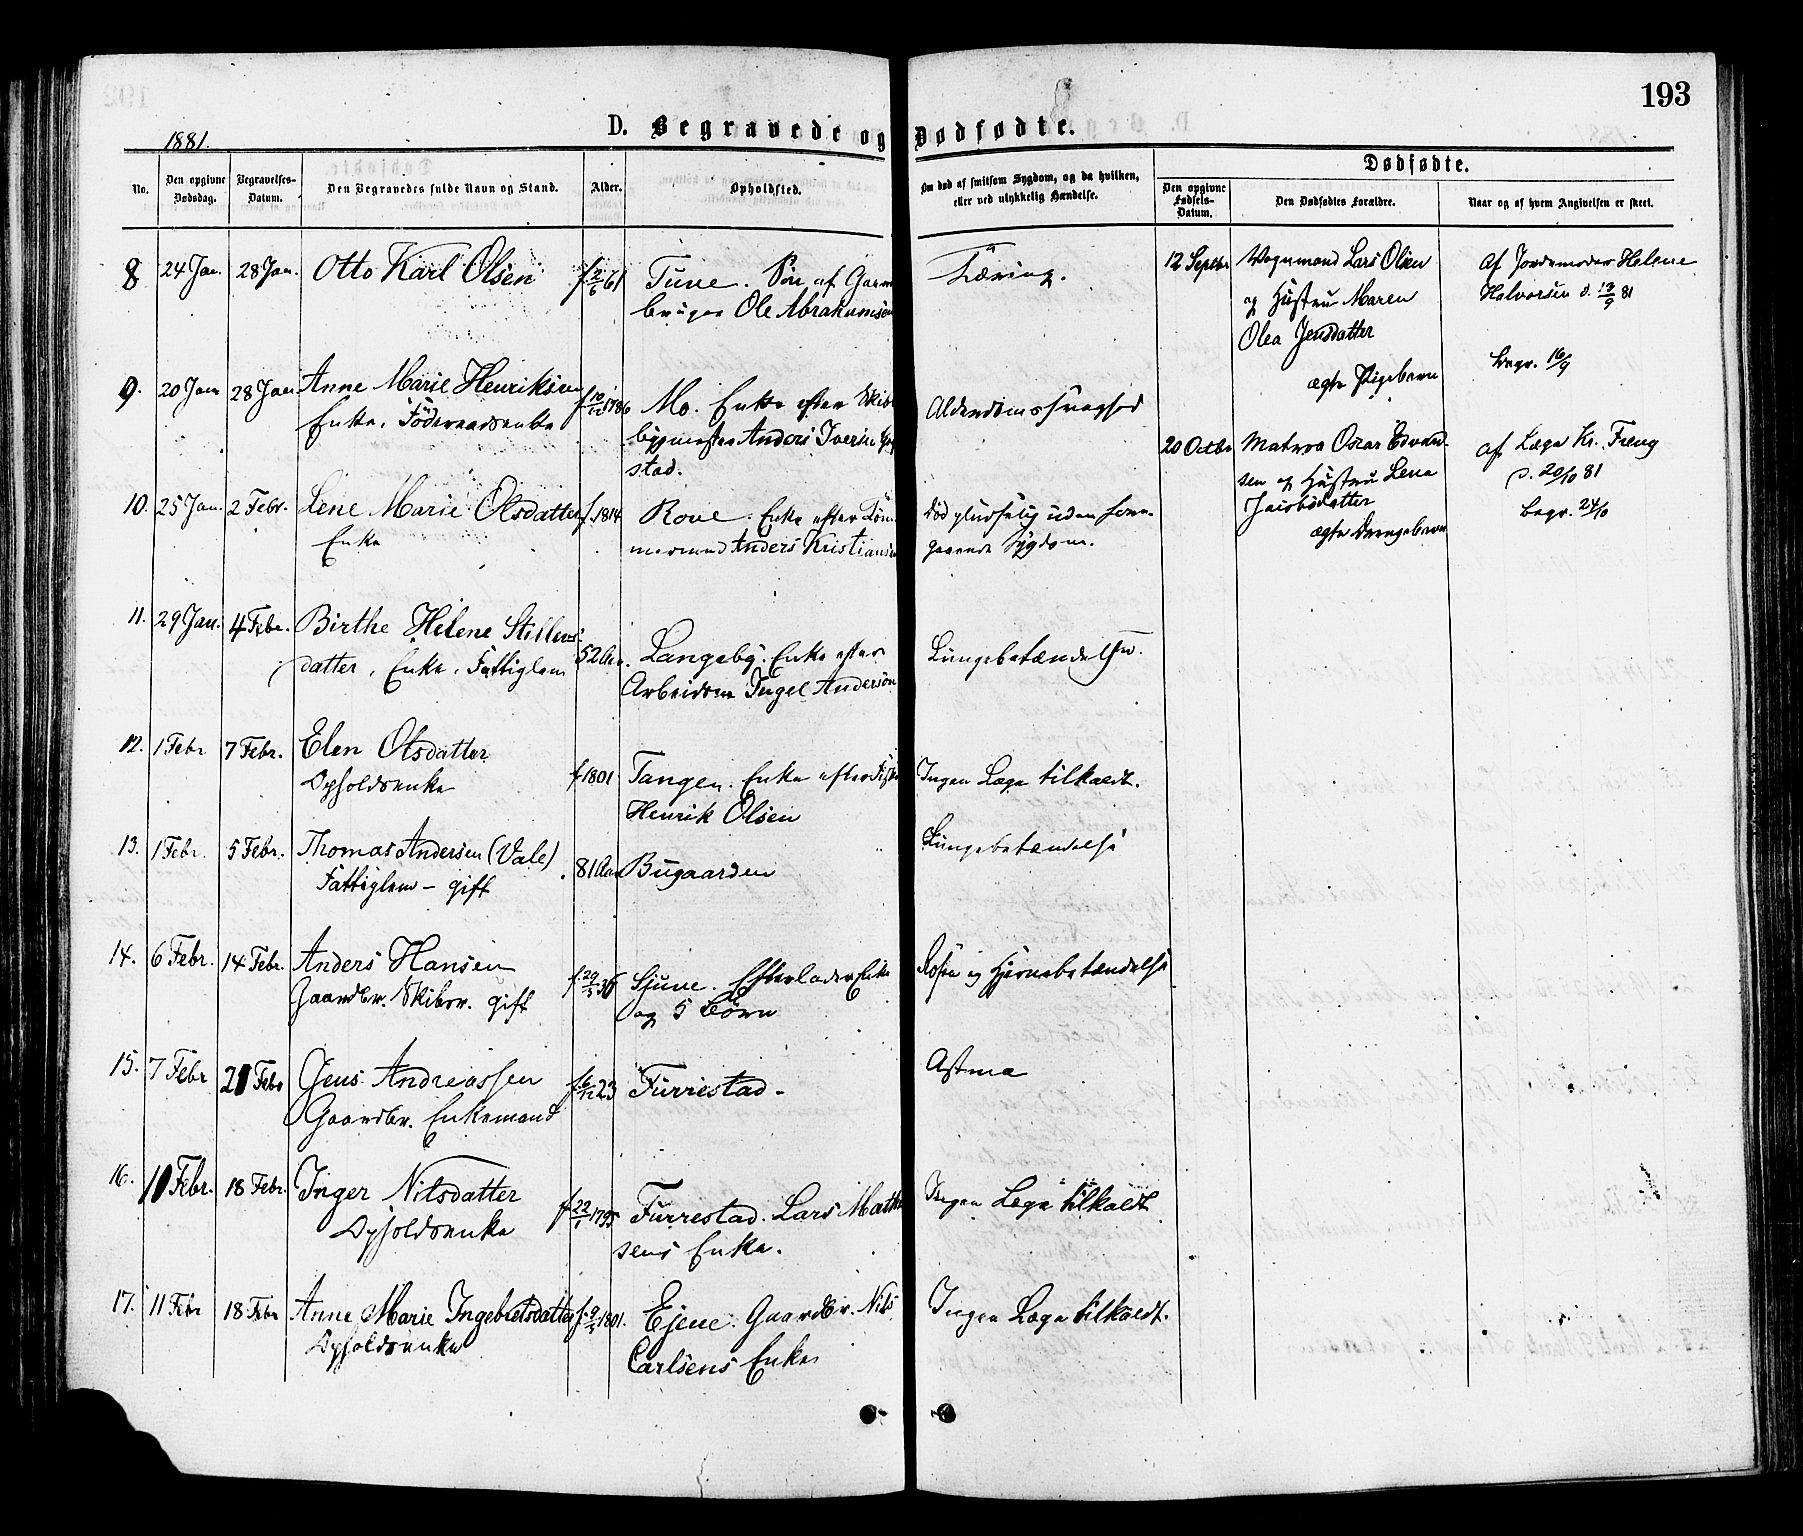 193
1881.
D. Begravede og Dødfødte.
No.
Den opgivne Dødsdag.
Begravelses-Datum.
Den Begravedes fulde Navn og Stand.
Alder.
Opholdsted.
Om død af smitsom Sygdom, og da hvilken, eller ved ulykkelig Hændelse.
Dødfødte.
Den opgivne Fødsels-Datum.
Den Dødfødtes Forældre.
Naar og af hvem Angivelsen er skeet.
8 24 Jan. 28 Jan. Otto Karl Olsen f. 2/6 61 Tune. Søn af Gaard-
bruger Ole Abrahamsen
Tæring.
9. 20 Jan 28 Jan Anne Marie Henriksen
Enke, Föderaadsenke
f 10/12 1786 Mo. Enke efter Skibs
bygmester Anders Iversen
stad.
Alderdomssvaghed
10. 25 Jan. 2 Febr. Lene Marie Olsdatter f. 1814 Rove. Enke efter Töm-
Enke
mermand Anders Kristiansen
död pludselig uden fore-
gaaende Sygdom.
11. 29 Jan. 4 Febr. Birthe Helene Stillevs-
datter, Enke, Fattiglem
52 Aar. Langeby. Enke efter
Arbeidsm Ingel Andersön
Lungebetændelse.
12. 1 Febr 7 Febr. Elen Olsdatter
Opholdsenke
f 1801 Tangen. Enke efter
Henrik Olsen
Ingen Læge tilkaldt.
13. 1 Febr. 5 Febr. Thomas Andersen (Vale)
Fattiglem - gift
81 Aar Bugaarden
Lungebetændelse
14. 6 Febr. 14 Febr. Anders Hansen
Gaardbr. Skibsr. gift
f. 29/5 36 Sjune. Efterlader Enke
og 5 Börn
Rosen og Hjernebetændelse
15. 7 Febr 21 Febr Jens Andreassen
Gaardbr. Enkemand
f 6/12 23 Furrestad -
Astma
16. 10 Febr. 18 Febr. Inger Nilsdatter
Opholdsenke
f 22/1 1795 Furrestad. Lars Math
sens Enke.
Ingen Læge tilkaldt
17. 11 Febr 18 Febr Anne Marie Ingebretsdatter
Opholdsenke
f. 9/5 1801. Ejene. Gaardbr. Nils
Carlsens Enke
Ingen Læge tilkaldt.
12 Septbr Vognmand Lars Olsen
og Hustru Maren
Olea Jensdatter
ægte Pigebarn
af Jordemoder Helene
Halvorsen d. 13/9 81
Begr. 16/9
20 Octbr Matros Oscar Edvard-
sen og Hustru Lena
ægte Drengebarn
af Læge Kr. Freng
d. 20/10 81
Begr. 24/10